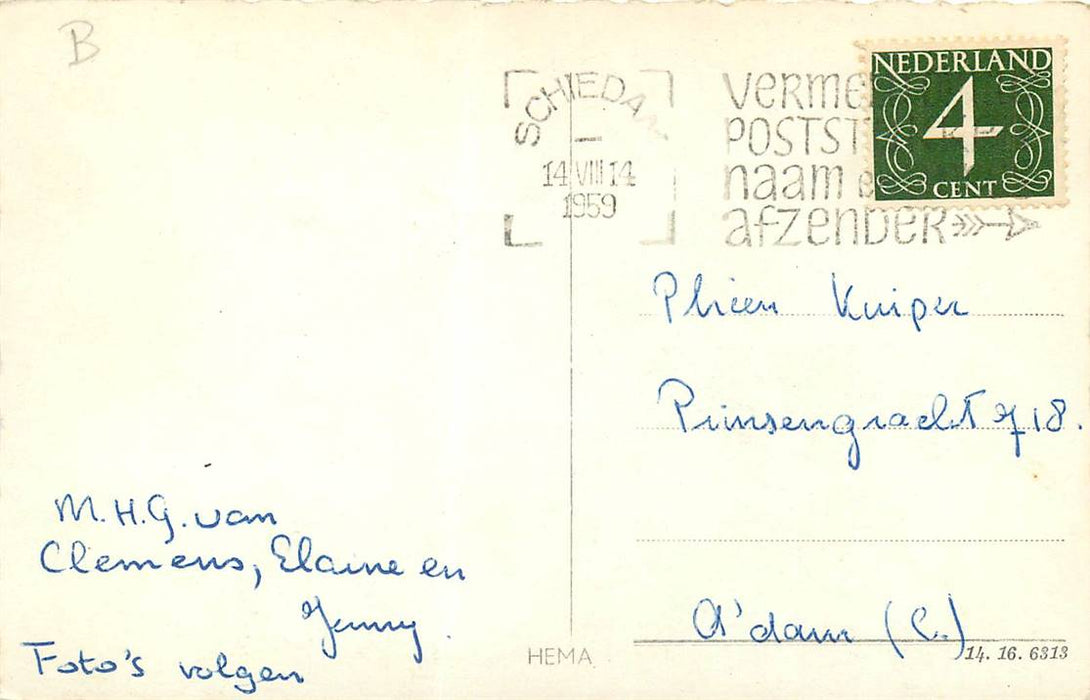 B
SCHIEDAM
14 VIII 14
1959
VERME
POSTST
naam e
afzender
NEDERLAND
4
CENT
Phien Kuiper
Prinsengracht 718.
A'dam (C.)
M.H.G. van
Clemens, Elaine en
Jenny.
Foto's volgen
HEMA
14. 16. 6313